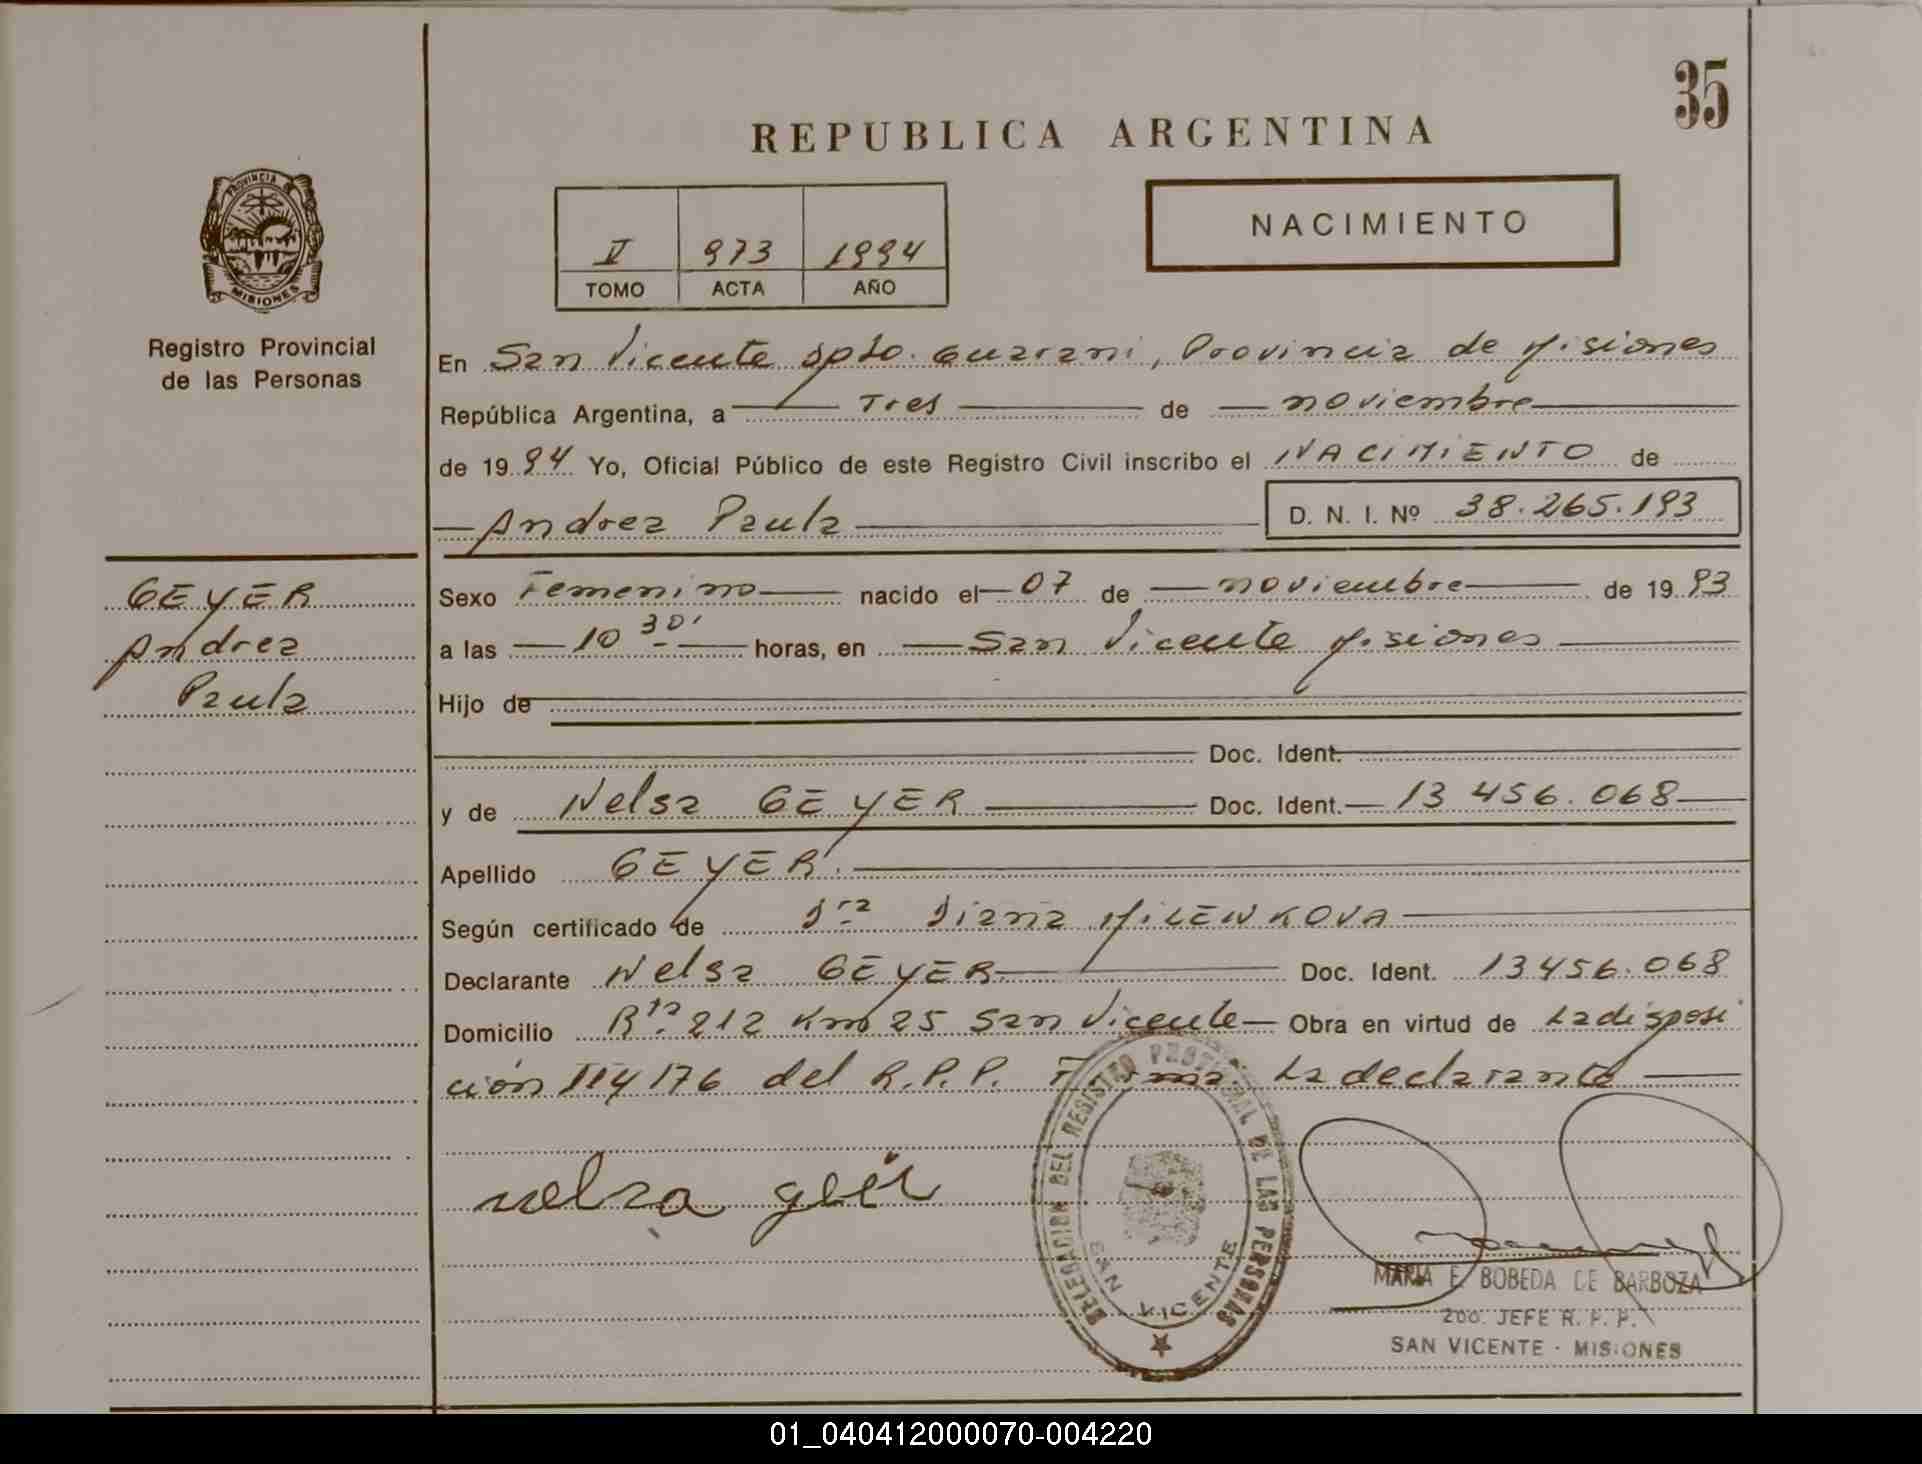 35
REPUBLICA ARGENTINA
PROVINCIA DE
MISIONES
Registro Provincial
de las Personas
II 973 1994
TOMO ACTA AÑO
NACIMIENTO
En San Vicente Dpto. Guarani, Provincia de Misiones
República Argentina, a Tres de noviembre
de 1994 Yo, Oficial Público de este Registro Civil inscribo el NACIMIENTO de
Andrea Paula D. N. I. Nº 38.265.193
GEYER
Andrea
Paula
Sexo Femenino nacido el 07 de noviembre de 1993
a las 10 30' horas, en San Vicente Misiones
Hijo de
Doc. Ident.
y de Nelsa GEYER Doc. Ident. 13 456.068
Apellido GEYER.
Según certificado de Dra Diana MILENKOVA
Declarante Nelsa GEYER Doc. Ident. 13456.068
Domicilio Rta. 212 Km 25 San Vicente Obra en virtud de La disposi
ción 114/76 del R.P.P. Firma La declarante
nelsa
DELEGACION DEL REGISTRO PROVINCIAL DE LAS PERSONAS
SAN VICENTE
MARIA E. BOBEDA DE BARBOZA
2do. JEFE R. P. P.
SAN VICENTE - MISIONES
01_040412000070-004220